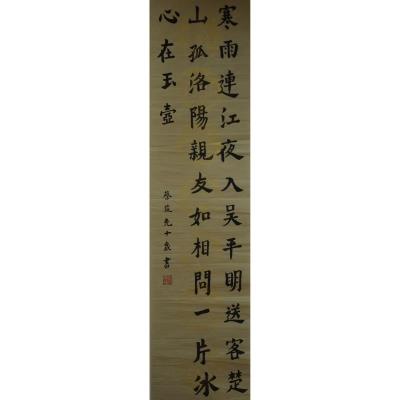 寒雨連江夜入吳平明送客楚
山孤洛陽親友如相問一片冰
心在玉壺
十歲書